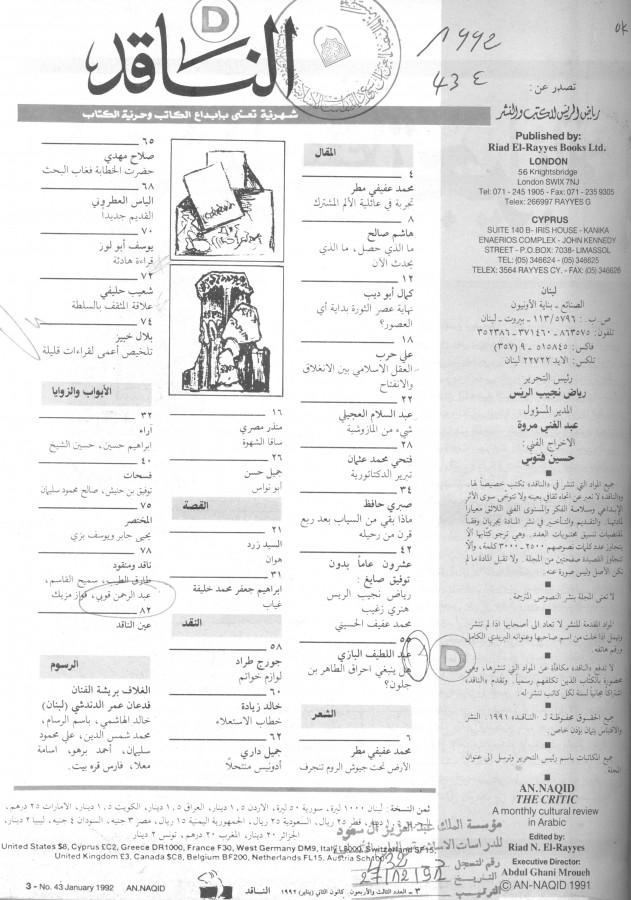 D
الناقد
شهرية تعنى بإبداع الكاتب وحرية الكتاب
1992
43 ع
تصدر عن:
رياض الريس للكتب والنشر
Published by:
Riad El-Rayyes Books Ltd.
LONDON
56 Knightsbridge
London SWIX 7NJ
Tel: 071 - 245 1905 - Fax: 071 - 235 9305
Telex: 266997 RAYYES G
CYPRUS
SUITE 140 B- IRIS HOUSE - KANIKA
ENAERIOS COMPLEX - JOHN KENNEDY
STREET - P.O.BOX: 7038- LIMASSOL
TEL: (05) 346624 - (05) 346625
TELEX: 3564 RAYYES CY. - FAX: (05) 346626
لبنان
الصنائع - بناية الأونيون
ص.ب.: ١١٣/٥٧٩٦ - بيروت - لبنان
تلفون: ٨٦٣٠٧٥ - ٣٧١٤٦٠ - ٣٥٢٣٨٦
فاكس: ٥١٥٨٤٥ - ٩ (٣٥٧)
تلكس: الايد ٢٢٧٢٢ لبنان
رئيس التحرير
رياض نجيب الريس
المدير المسؤول
عبد الغني مروة
الاخراج الفني:
حسين فتوني
جميع المواد التي تنشر في «الناقد» تكتب خصيصاً لها.
و«الناقد» لا تعبر عن اتجاه ثقافي بعينه ولا تتوخى سوى الأثر
الإبداعي وسلامة الفكر والمستوى الفني اللائق معياراً
لمادتها. والتقديم والتأخير في نشر المادة يجريان وفقاً
لمقتضيات تنسيق محتويات العدد. وهي ترجو كتابها ألا
يتجاوز عدد كلمات نصوصهم ٢٥٠٠ - ٣٠٠٠ كلمة، وألا
تتجاوز القصيدة صفحتين من المجلة. ولا تقبل المادة ما لم
تكن الأصل وليس صورة عنه.
لا تعنى المجلة بنشر النصوص المترجمة.
المواد المقدمة للنشر لا تعاد الى أصحابها اذا لم تنشر
وتهمل اذا خلت من اسم صاحبها وعنوانه البريدي الكامل
ورقم هاتفه.
لا تدفع «الناقد» مكافأة عن المواد التي تنشرها، وهي
محصورة بالكتّاب الذين تكلفهم رسمياً. وتقدم «الناقد»
اشتراكاً مجانياً لسنة لكل كاتب تنشر له.
جميع الحقوق محفوظة لـ «الناقد» ١٩٩١. النشر
والاقتباس يتمان بإذن خاص.
جميع المكاتبات باسم رئيس التحرير وترسل إلى عنوان
المجلة.
AN.NAQID
THE CRITIC
A monthly cultural review
in Arabic
Edited by:
Riad N. El-Rayyes
Executive Director:
Abdul Ghani Mroueh
© AN-NAQID 1991
المقال
٤
محمد عفيفي مطر
تجربة في عائلية الألم المشترك
٨
هاشم صالح
ما الذي حصل، ما الذي
يحدث الآن
١٢
كمال أبو ديب
نهاية عصر الثورة بداية أي
العصور؟
١٨
علي حرب
العقل الاسلامي بين الانغلاق
والانفتاح
٢٢
عبد السلام العجيلي
شيء من المازوشية
٢٨
فتحي محمد عثمان
تبرير الدكتاتورية
٣٤
صبري حافظ
ماذا بقي من السياب بعد ربع
قرن من رحيله
٤٢
عشرون عاماً بدون
توفيق صايغ:
رياض نجيب الريس
هنري زغيب
محمد عفيف الحسيني
٥٥
عبد اللطيف البازي
هل ينبغي احراق الطاهر بن
جلون؟
الشعر
٦
محمد عفيفي مطر
الأرض تحت جيوش الروم تنجرف
١٦
منذر مصري
ساقا الشهوة
٢٦
جميل حسن
أبو نواس
القصة
٢١
السيد زرد
هوان
٣١
ابراهيم جعفر محمد خليفة
غياب
النقد
٥٨
جورج طراد
لوازم خواتم
٦٠
خالد زيادة
خطاب الاستعلاء
٦٢
جميل داري
أدونيس منتحلاً
٦٥
صلاح مهدي
حضرت الخطابة فغاب البحث
٦٨
الياس العطروني
القديم جديدا
٧٠
يوسف أبو لوز
قراءة هادئة
٧٢
شعيب حليفي
علاقة المثقف بالسلطة
٧٤
بلال خبيز
تلخيص أعمى لقراءات قليلة
الأبواب والزوايا
٣٢
آراء
ابراهيم حسين، حسين الشيخ
٤٠
فسحات
توفيق بن حنيش، صالح محمود سليمان
٧٥
المختصر
يحيى جابر ويوسف بزي
٧٨
ناقد ومنقود
طارق الطيب، سميح القاسم،
عبد الرحمن قوبي، فواز مزيك
٨٢
عين الناقد
الرسوم
الغلاف بريشة الفنان
فدعان عمر الدندشي (لبنان)
خالد الهاشمي، باسم الرسام،
محمد شمس الدين، علي محمود
سليمان، أحمد برهو، اسامة
معلا، فارس قره بيت.
D
ثمن النسخة: لبنان ١٠٠٠ ليرة، سورية ٥٠ ليرة، الاردن ١,٥ دينار، العراق ١,٥ دينار، الكويت ١,٥ دينار، الامارات ٢٥ درهم،
البحرين ٢ دينار، قطر ٢٥ ريال، السعودية ٢٥ ريال، الجمهورية اليمنية ١٥ ريال، مصر ٣ جنيه، السودان ٤ جنيه، ليبيا ٢ دينار،
الجزائر ٢٠ دينار، المغرب ٢٠ درهم، تونس ٢ دينار
United States $8, Cyprus £C2, Greece DR1000, France F30, West Germany DM9, Italy L8000, Switzerland SF15,
United Kingdom £3, Canada $C8, Belgium BF200, Netherlands FL15, Austria Sch100
مؤسسة الملك عبد العزيز آل سعود
للدراسات الاسلامية
رقم التسجيل
التاريخ 27/12/91
الترتيب
3 - No. 43 January 1992 AN.NAQID
٣ - العدد الثالث والأربعون كانون الثاني (يناير) ١٩٩٢ الناقد